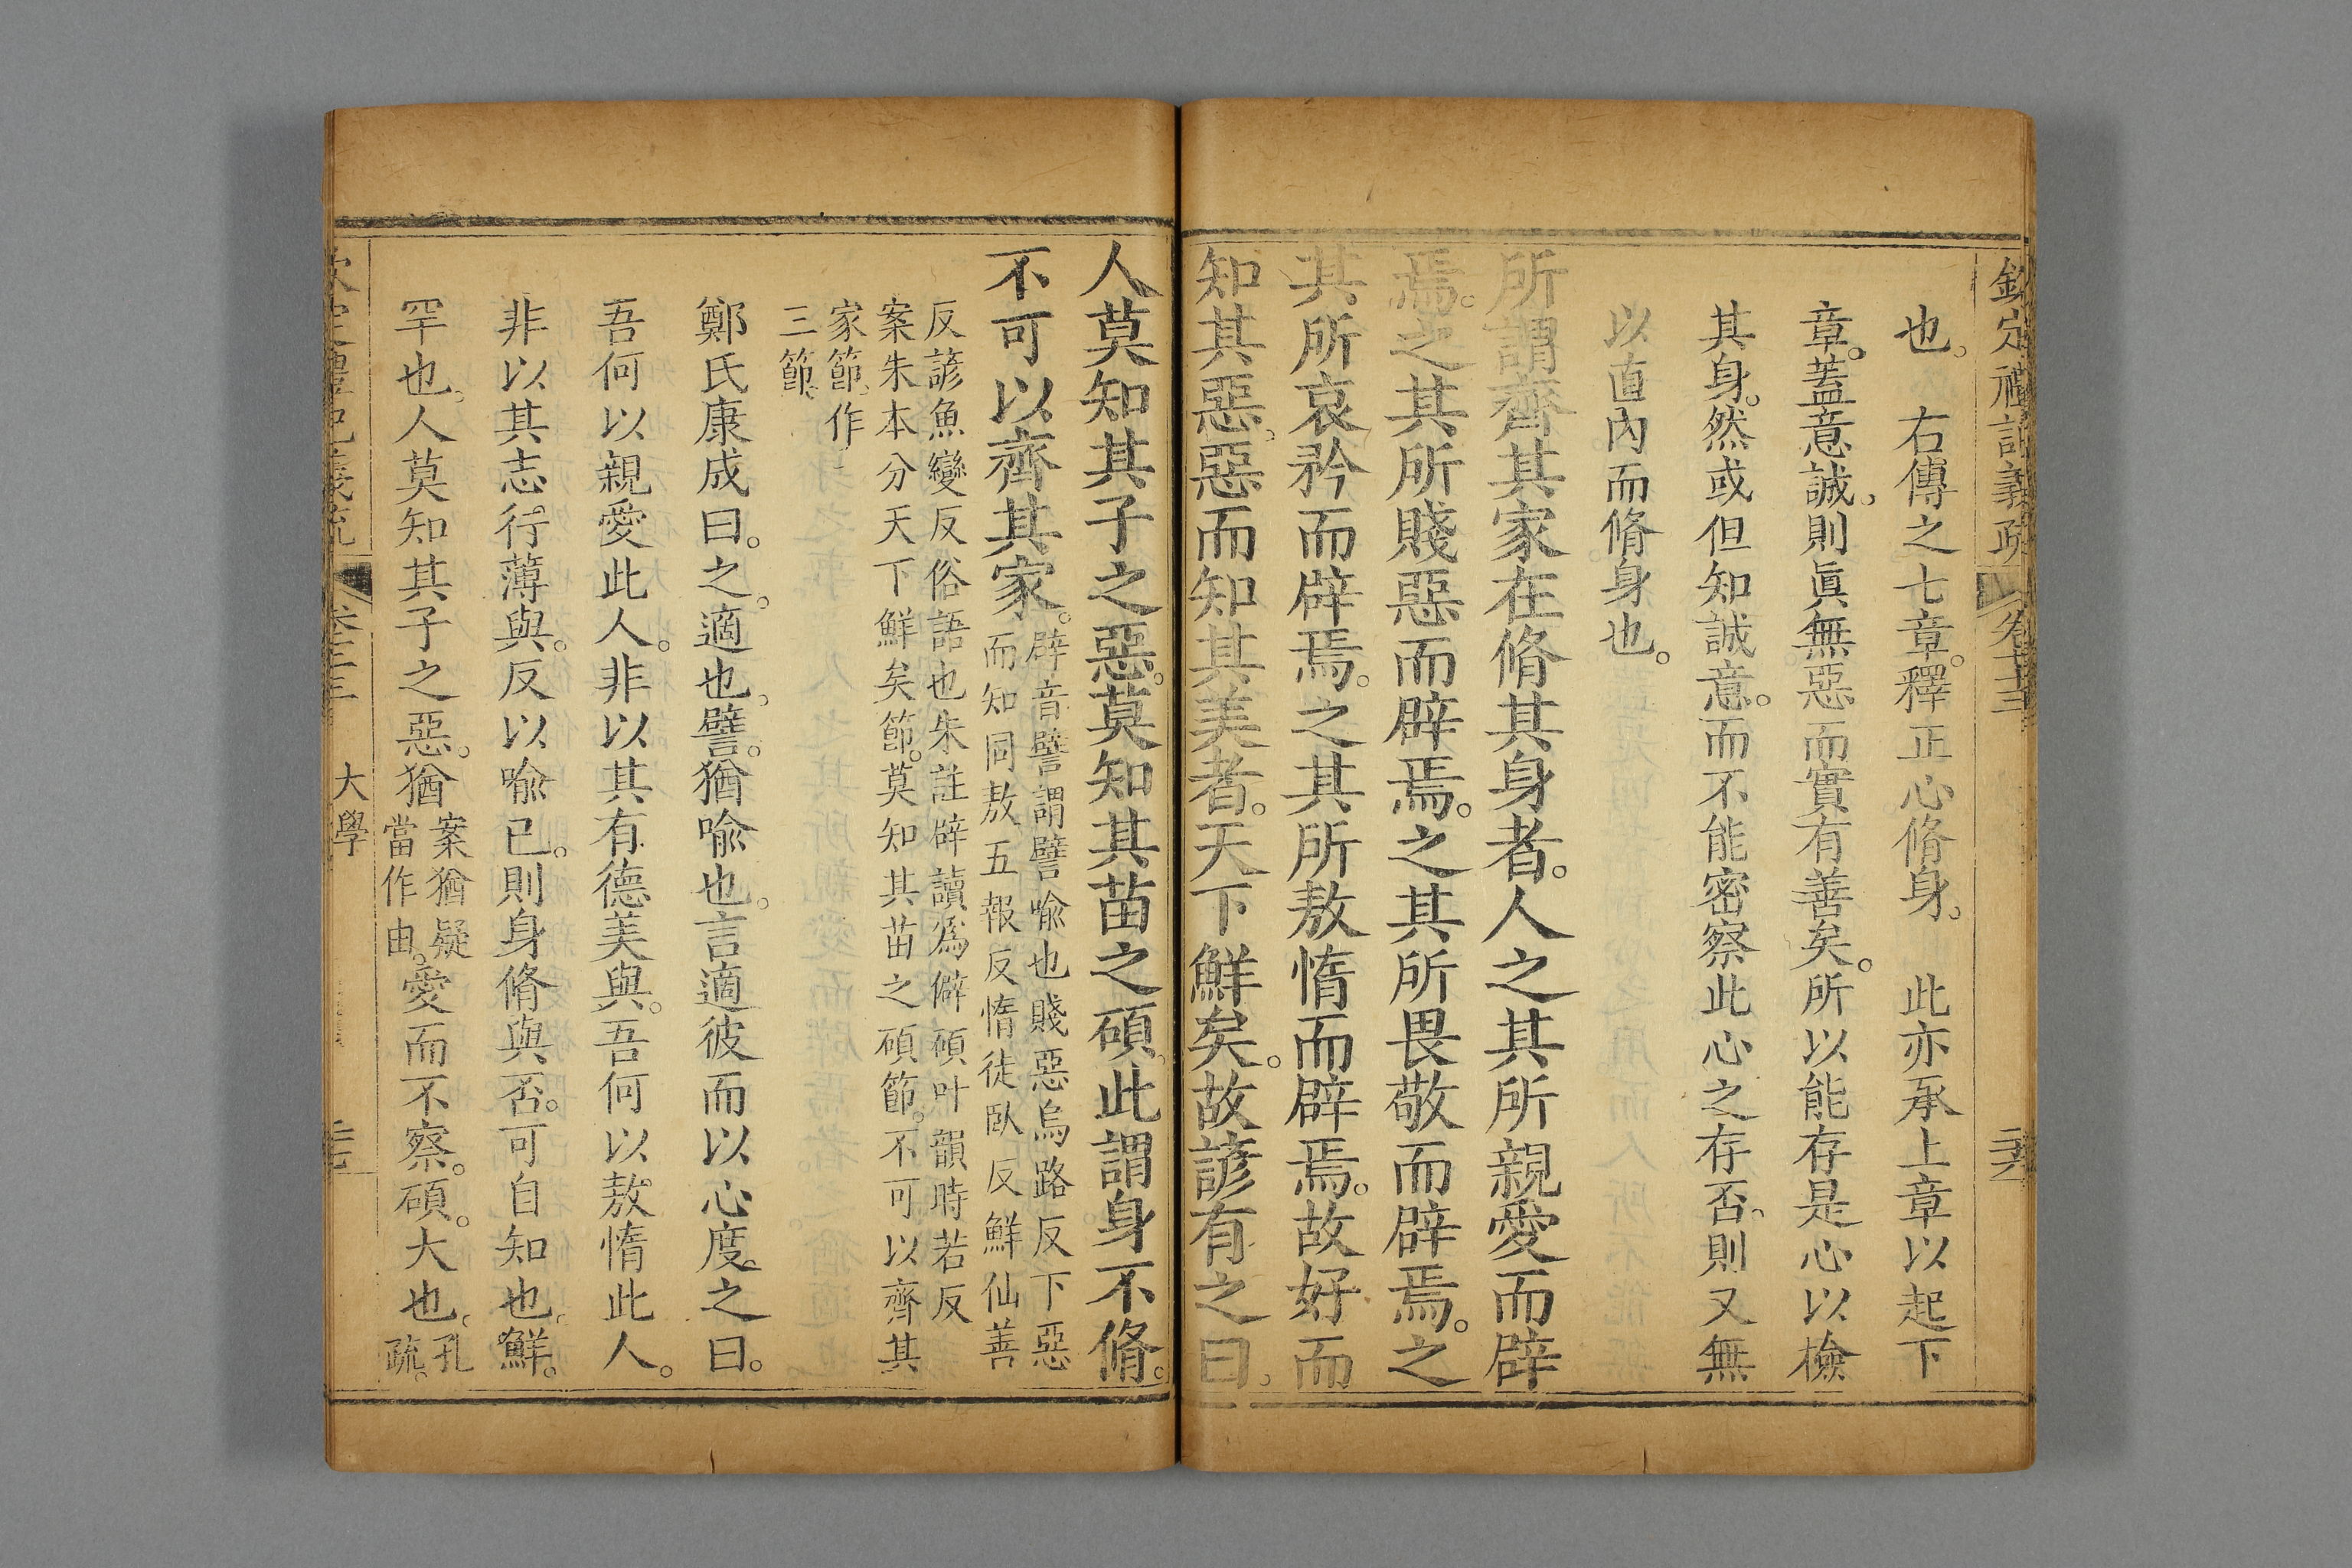 欽定禮記義疏
卷七十三
二六
也。　右傳之七章。釋正心脩身。　此亦承上章以起下
章。蓋意誠。則眞無惡而實有善矣。所以能存是心以檢
其身。然或但知誠意。而不能密察此心之存否。則又無
以直內而脩身也。
所謂齊其家在脩其身者。人之其所親愛而辟
焉。之其所賤惡而辟焉。之其所畏敬而辟焉。之
其所哀矜而辟焉。之其所敖惰而辟焉。故好而
知其惡。惡而知其美者。天下鮮矣。故諺有之曰。
人莫知其子之惡。莫知其苗之碩。此謂身不脩。
不可以齊其家。
辟音譬謂譬喻也賤惡烏路反下惡
而知同敖五報反惰徒臥反鮮仙善
反諺魚變反俗語也朱註辟讀爲僻碩叶韻時若反
案朱本分天下鮮矣節。莫知其苗之碩節。不可以齊其
家節。作
三節。
鄭氏康成曰。之。適也。譬。猶喻也。言適彼而以心度。之曰。
吾何以親愛此人。非以其有德美與。吾何以敖惰此人。
非以其志行薄與。反以喻己。則身脩與否。可自知也。鮮。
罕也。人莫知其子之惡。猶
案猶疑
當作由。
愛而不察。碩。大也。
孔
疏。
大學